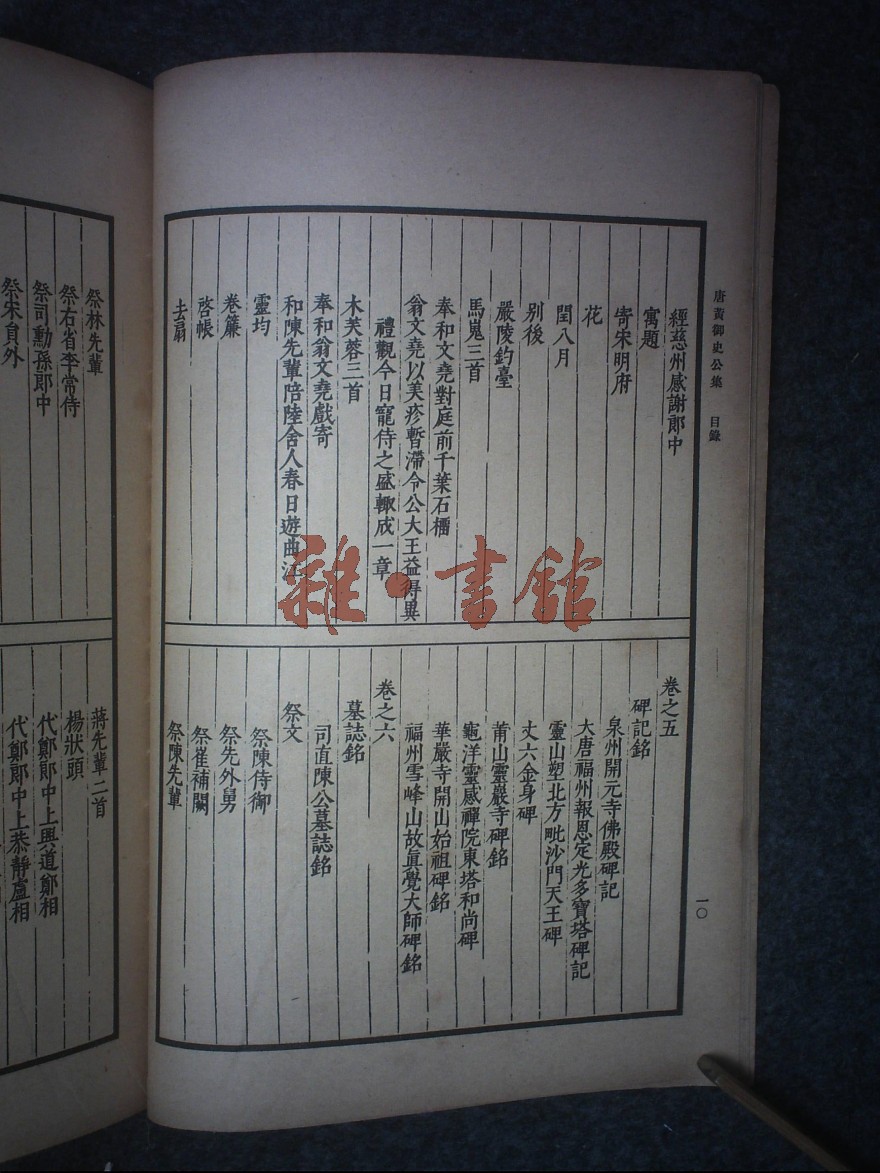 唐黃御史公集 目錄
一〇
經慈州感謝郎中
寓題
寄宋明府
花
閏八月
别後
嚴陵釣臺
馬嵬三首
奉和文堯對庭前千葉石榴
翁文堯以美疹暫滯令公大王益得異
禮觀今日寵侍之盛輙成一章
木芙蓉三首
奉和翁文堯戲寄
和陳先輩陪陸舍人春日遊曲江
靈均
卷簾
啓帳
去扇
卷之五
碑記銘
泉州開元寺佛殿碑記
大唐福州報恩定光多寶塔碑記
靈山塑北方毗沙門天王碑
丈六金身碑
莆山靈巖寺碑銘
龜洋靈感禪院東塔和尚碑
華嚴寺開山始祖碑銘
福州雪峰山故眞覺大師碑銘
卷之六
墓誌銘
司直陳公墓誌銘
祭文
祭陳侍御
祭先外舅
祭崔補闕
祭陳先輩
祭林先輩
祭右省李常侍
祭司勳孫郎中
祭宋員外
蔣先輩二首
楊狀頭
代鄭郎中上興道鄭相
代鄭郎中上恭靜盧相
雜·書館